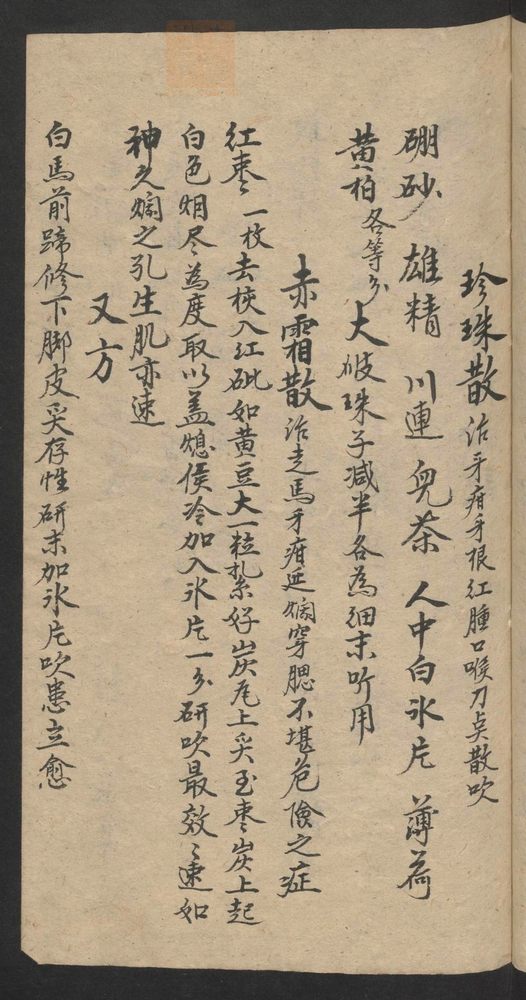 珍珠散 治牙疳牙根红腫口喉刀点散吹
硼砂 雄精 川連 兒茶 人中白 氷片 薄荷
黄柏 各等分 大破珠子減半各為細末听用
赤霜散 治走馬牙疳延爛穿腮不堪危險之症
红棗一枚去核入红砒如黄豆大一粒扎紮好炭尾上炙至棗炭上起
白色烟尽為度取以盖熄候冷加入氷片一分研吹最效〻速如
神久爛之孔生肌亦速
又方
白馬前蹄修下脚皮炙存性研末加氷片吹患立愈